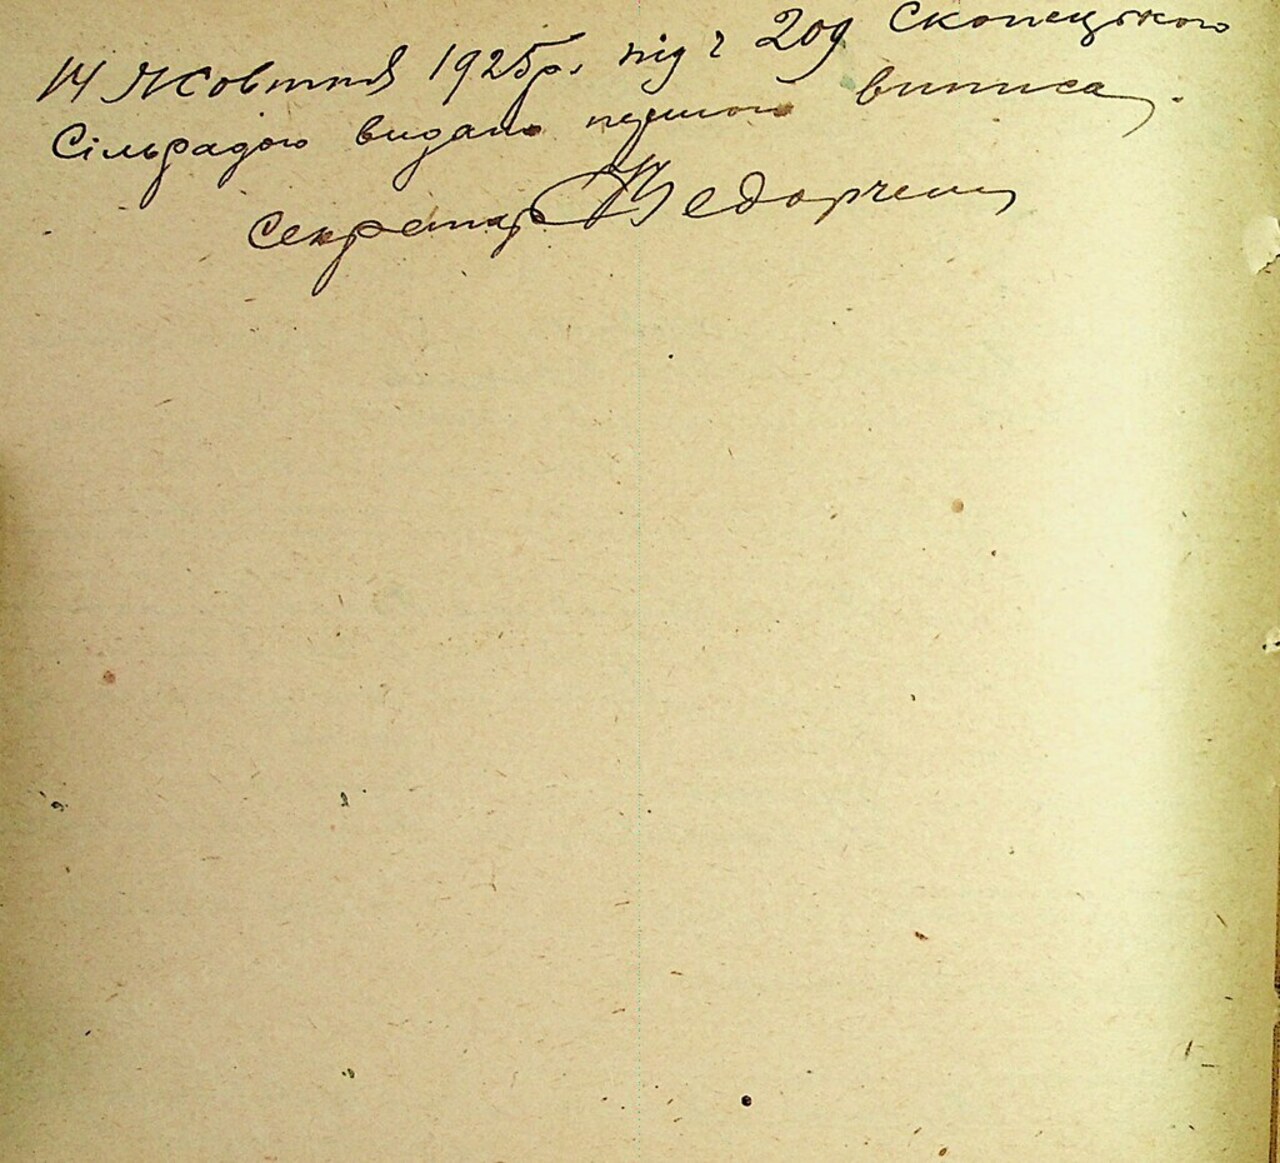 14 Жовтня 1925р. під ч 209 Скопецькою
Сільрадою видано першого виписа.
Секретар Федорченко